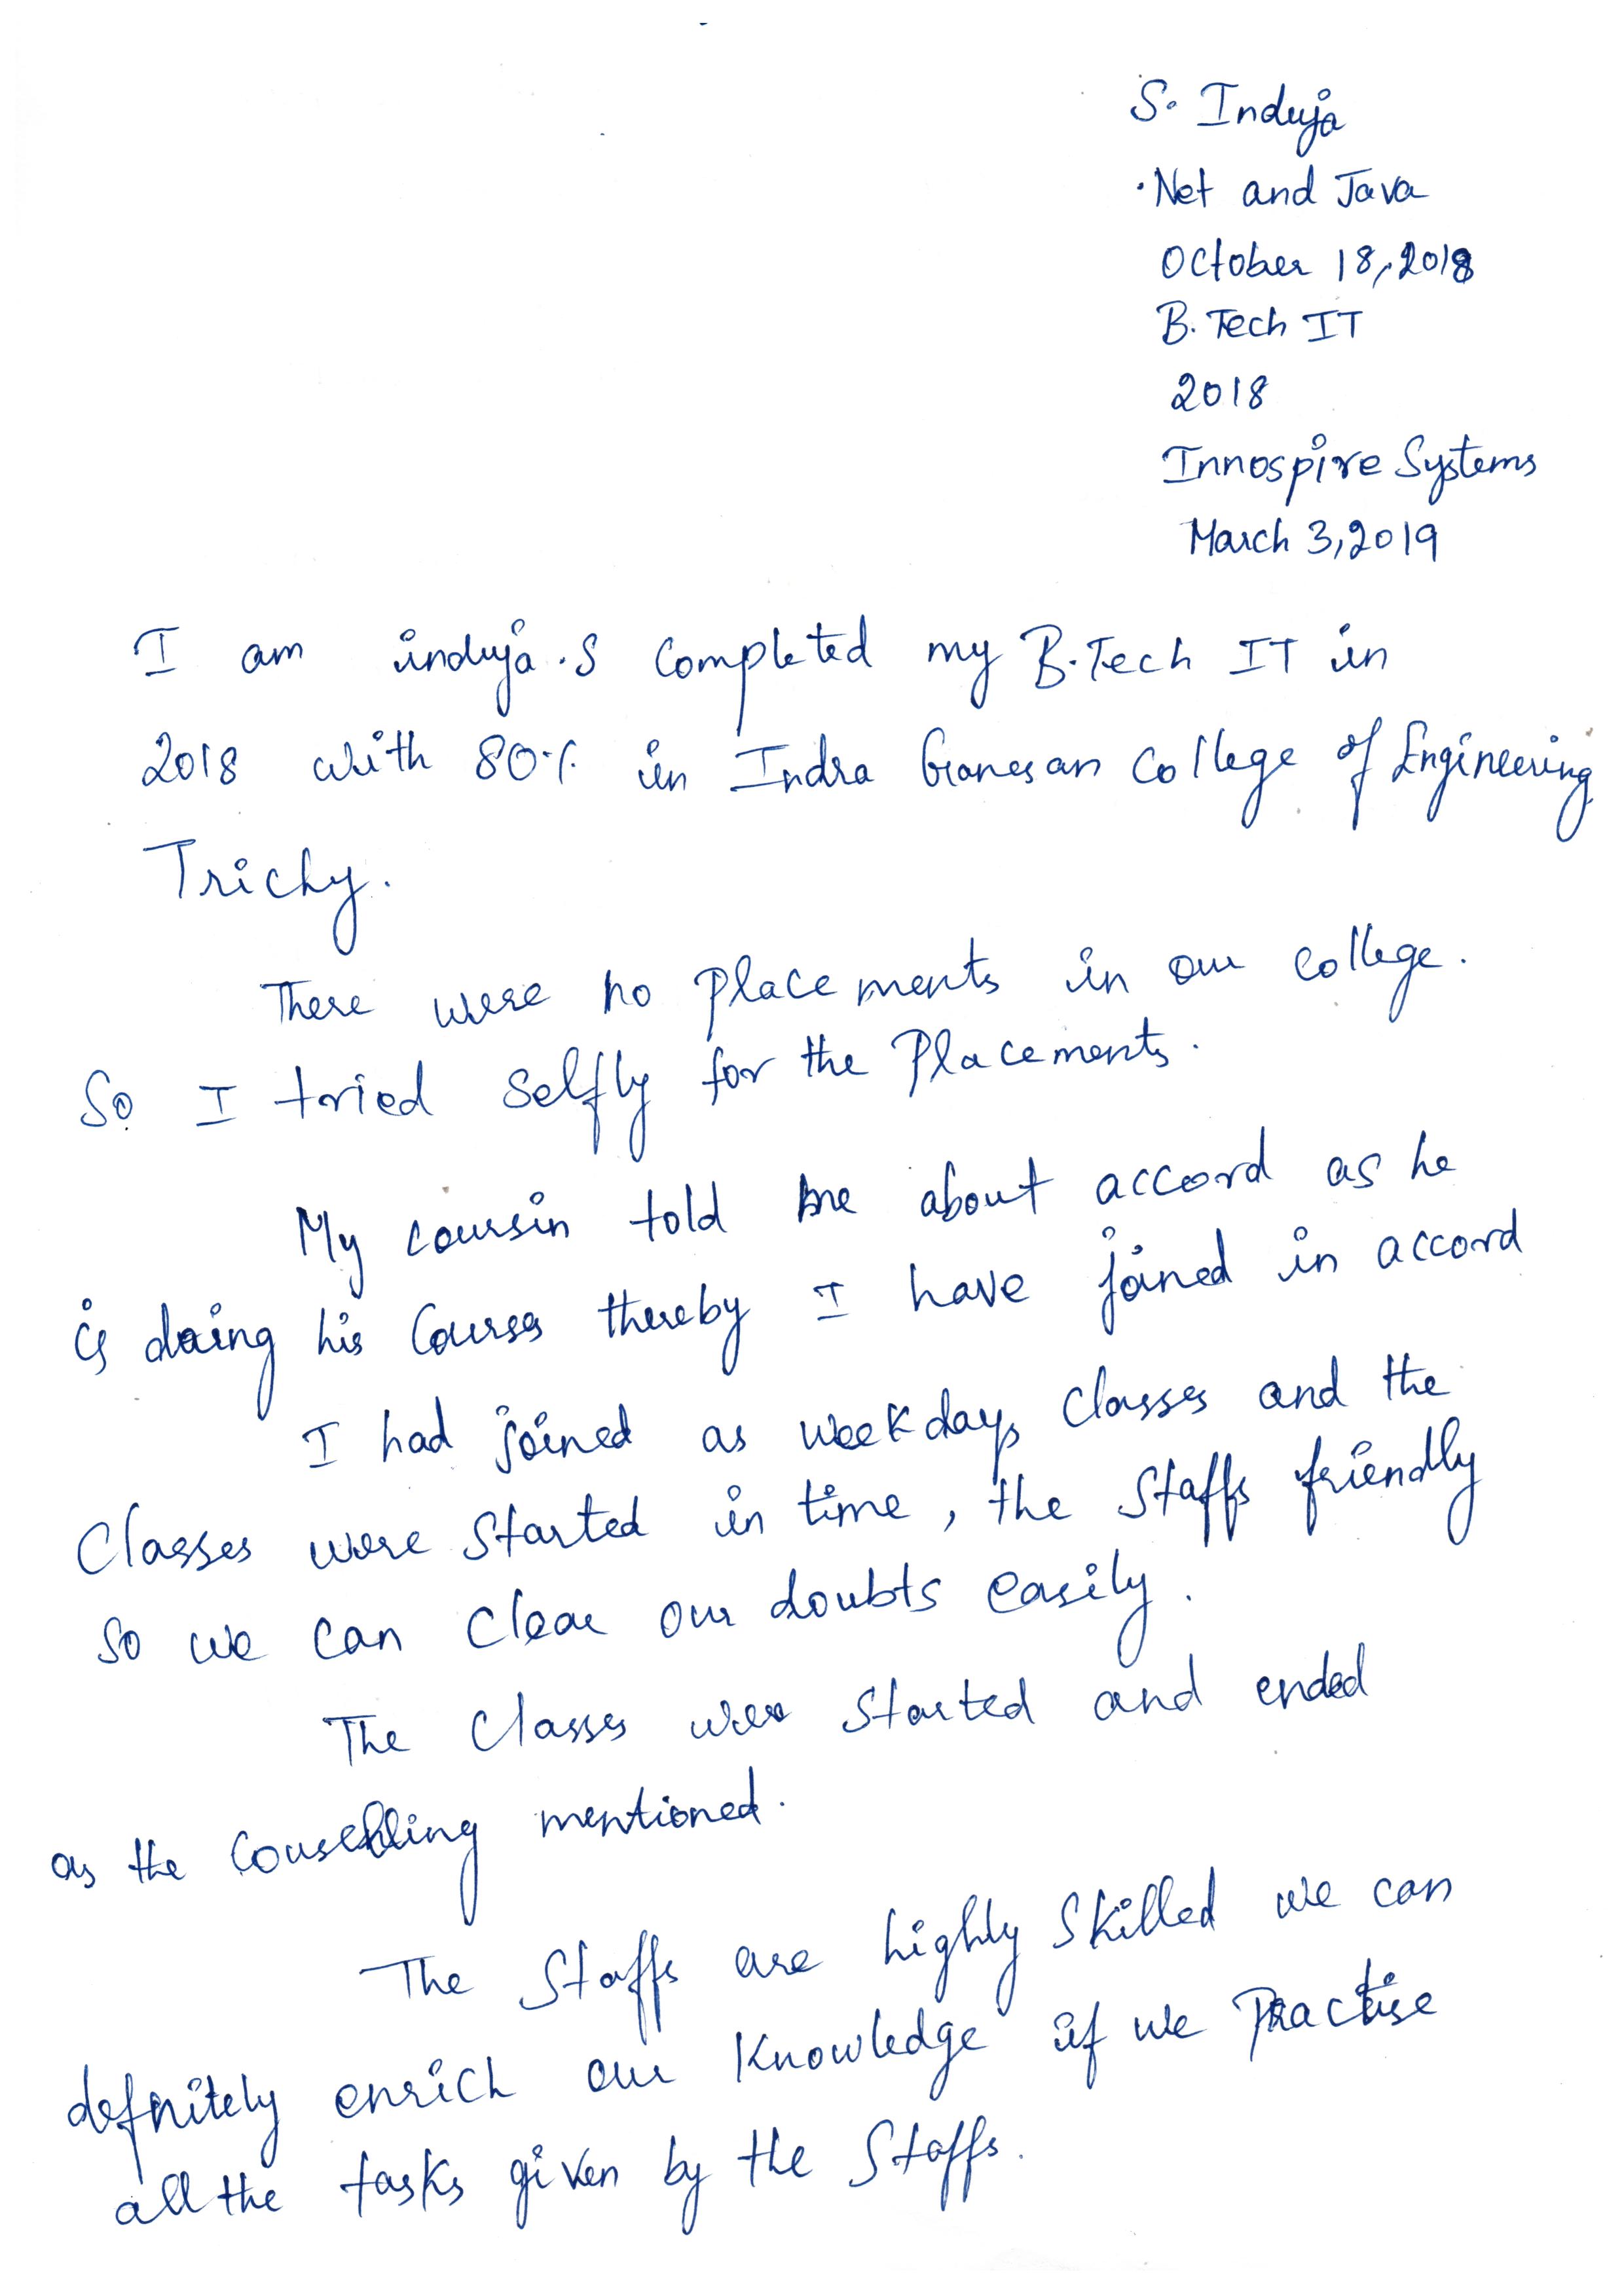 S. Induja
.Net and Java
October 18, 2018
B. Tech IT
2018
Innospire Systems
March 3, 2019
I am induja.S completed my B.Tech IT in
2018 with 80% in Indra Ganesan College of Engineering
Trichy.
There were no placements in our college.
So I tried selfly for the Placements.
My coursin told me about accord as he
is doing his Courses thereby I have joined in accord
I had joined as weekdays classes and the
Classes were started in time, the Staffs friendly
So we can clear our doubts easily.
The Classes were started and ended
as the Couselling mentioned.
The Staffs are highly Skilled we can
defnitely enrich our Knowledge if we Practise
all the tasks given by the Staffs.